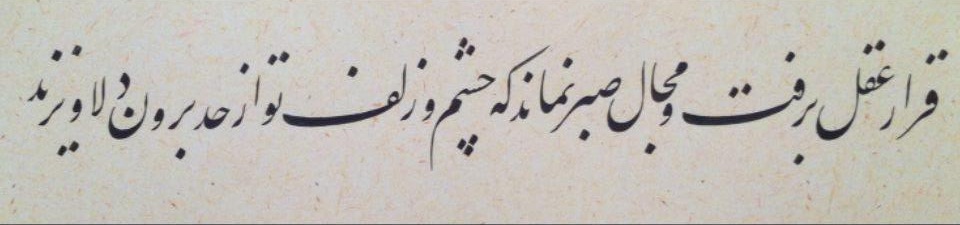 قرار عقل برفت و مجال صبر نماند که چشم و زلف تو از حد برون دلاویزند